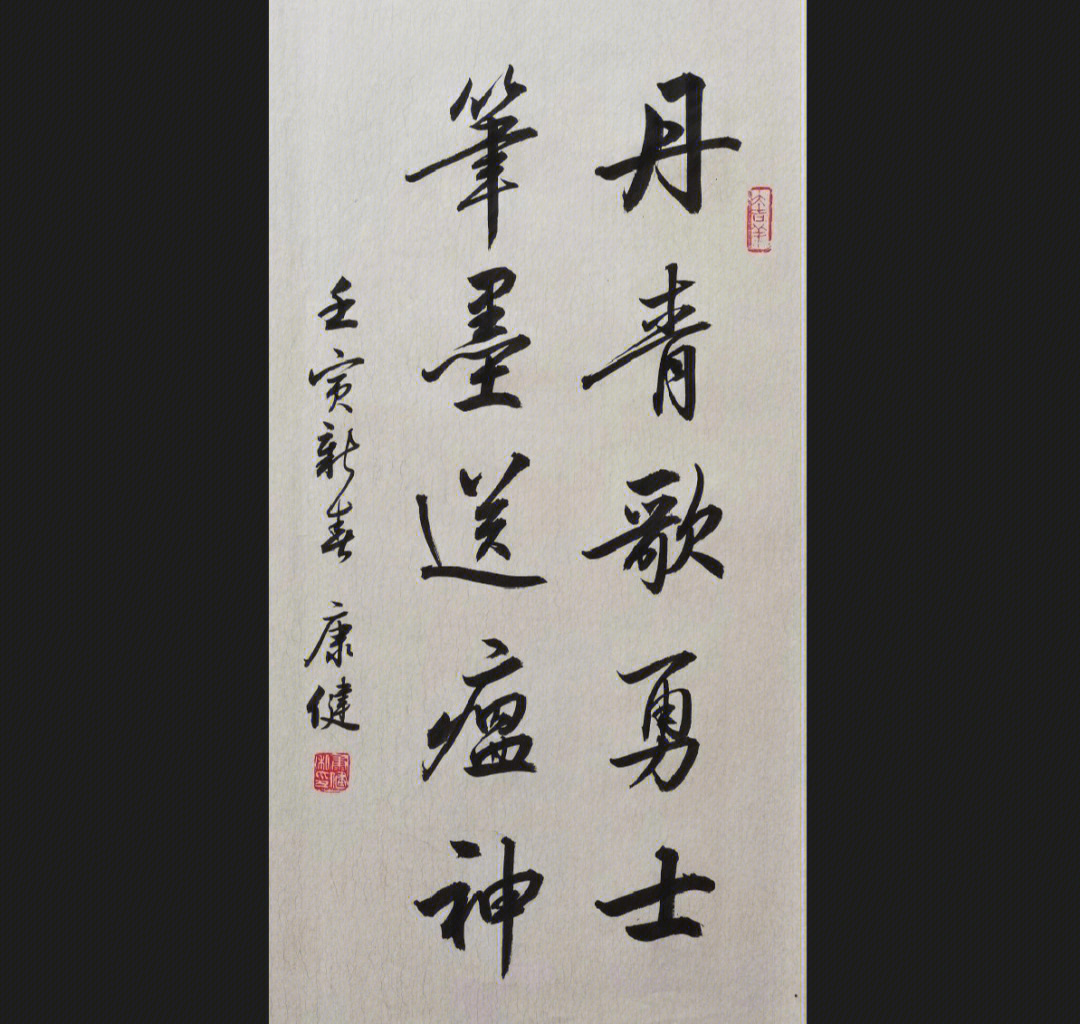 丹青歌勇士
筆墨送瘟神
壬寅新春 康健